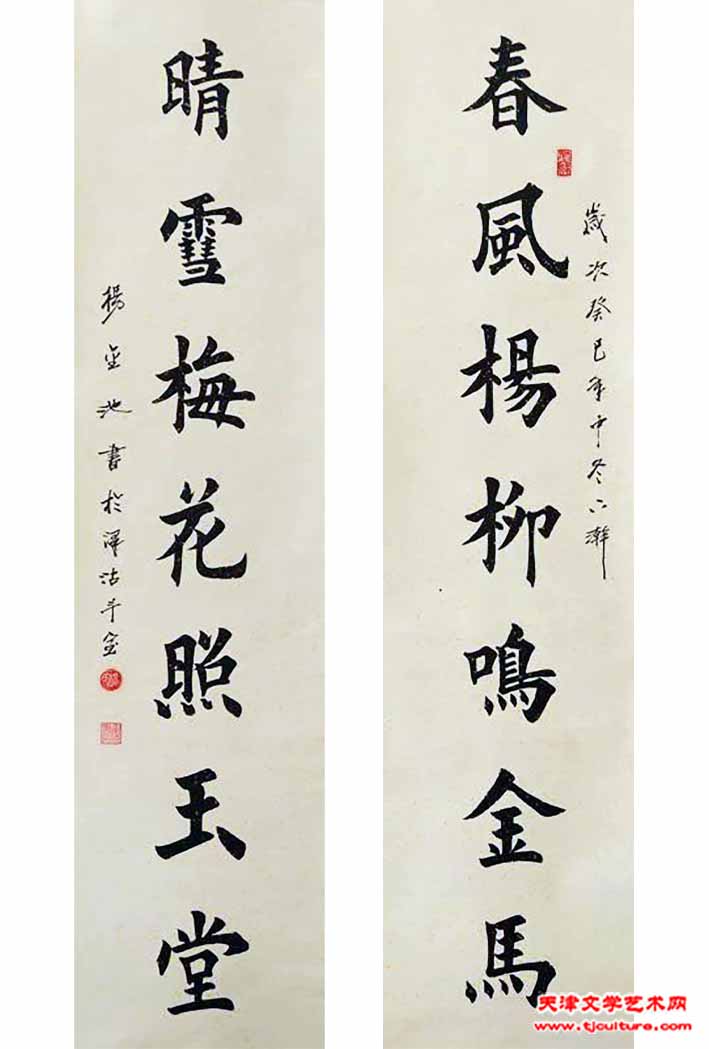 春風楊柳鳴金馬
歲次癸巳年中冬下澣
晴雪梅花照玉堂
楊金池書於津沽斗室
天津文学艺术网
www.tjculture.com